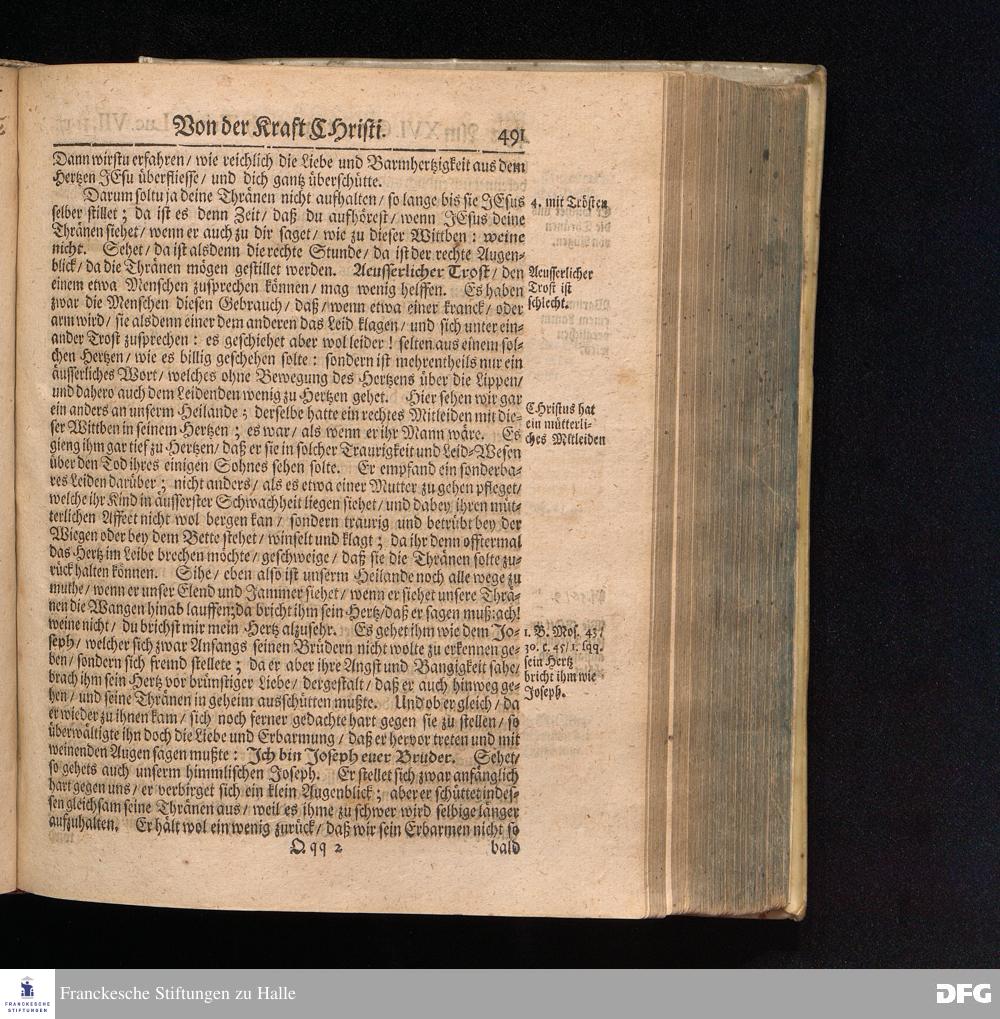 Von der Krafft CHristi.
491
Dann wirstu erfahren / wie reichlich die Liebe und Barmhertzigkeit aus dem
Hertzen JEsu überfliesse / und dich gantz überschütte.
Darum soltu ja deine Thränen nicht aufhalten / so lange bis sie JEsus
selber stillet ; da ist es denn Zeit / daß du aufhörest / wenn JEsus deine
Thränen siehet / wenn er auch zu dir saget / wie zu dieser Wittben : weine
nicht. Sehet / da ist alsdenn die rechte Stunde / da ist der rechte Augen-
blick / da die Thränen mögen gestillet werden. Aeusserlicher Trost / den
einem etwa Menschen zusprechen können / mag wenig helffen. Es haben
zwar die Menschen diesen Gebrauch / daß / wenn etwa einer kranck / oder
arm wird / sie alsdenn einer dem anderen das Leid klagen / und sich unter ein-
ander Trost zusprechen : es geschiehet aber wol leider ! selten aus einem sol-
chen Hertzen / wie es billig geschehen solte : sondern ist mehrentheils nur ein
äusserliches Wort / welches ohne Bewegung des Hertzens über die Lippen /
und dahero auch dem Leidenden wenig zu Hertzen gehet. Hier sehen wir gar
ein anders an unserm Heilande ; derselbe hatte ein rechtes Mitleiden mit die-
ser Wittben in seinem Hertzen ; es war / als wenn er ihr Mann wäre. Es
gieng ihm gar tief zu Hertzen / daß er sie in solcher Traurigkeit und Leid-Wesen
über den Tod ihres einigen Sohnes sehen solte. Er empfand ein sonderba-
res Leiden darüber ; nicht anders / als es etwa einer Mutter zu gehen pfleget /
welche ihr Kind in äusserster Schwachheit liegen siehet / und dabey ihren müt-
terlichen Affect nicht wol bergen kan / sondern traurig und betrübt bey der
Wiegen oder bey dem Bette stehet / winselt und klagt ; da ihr denn offtermal
das Hertz im Leibe brechen möchte / geschweige / daß sie die Thränen solte zu-
rück halten können. Sihe / eben also ist unserm Heilande noch alle wege zu
muthe / wenn er unser Elend und Jammer siehet / wenn er siehet unsere Thrä-
nen die Wangen hinab lauffen ; da bricht ihm sein Hertz / daß er sagen muß : ach !
weine nicht / du brichst mir mein Hertz alzusehr. Es gehet ihm wie dem Jo-
seph / welcher sich zwar Anfangs seinen Brüdern nicht wolte zu erkennen ge-
ben / sondern sich fremd stellete ; da er aber ihre Angst und Bangigkeit sahe /
brach ihm sein Hertz vor brünstiger Liebe / dergestalt / daß er auch hinweg ge-
hen / und seine Thränen in geheim ausschütten mußte. Und ob er gleich / da
er wieder zu ihnen kam / sich noch ferner gedachte hart gegen sie zu stellen / so
überwältigte ihn doch die Liebe und Erbarmung / daß er hervor treten und mit
weinenden Augen sagen mußte : Jch bin Joseph euer Bruder. Sehet /
so gehets auch unserm himmlischen Joseph. Er stellet sich zwar anfänglich
hart gegen uns / er verbirget sich ein klein Augenblick ; aber er schüttet indes-
sen gleichsam seine Thränen aus / weil es ihme zu schwer wird selbige länger
aufzuhalten. Er hält wol ein wenig zurück / daß wir sein Erbarmen nicht so
Qqq 2
bald
4. mit Trösten
Aeusserlicher
Trost ist
schlecht.
CHristus hat
ein mütterli-
ches Mitleiden
1. B. Mos. 43 /
30. c. 45 / 1. sqq.
sein Hertz
bricht ihm wie
Joseph.
Franckesche Stiftungen zu Halle
FRANCKESCHE
STIFTUNGEN
DFG